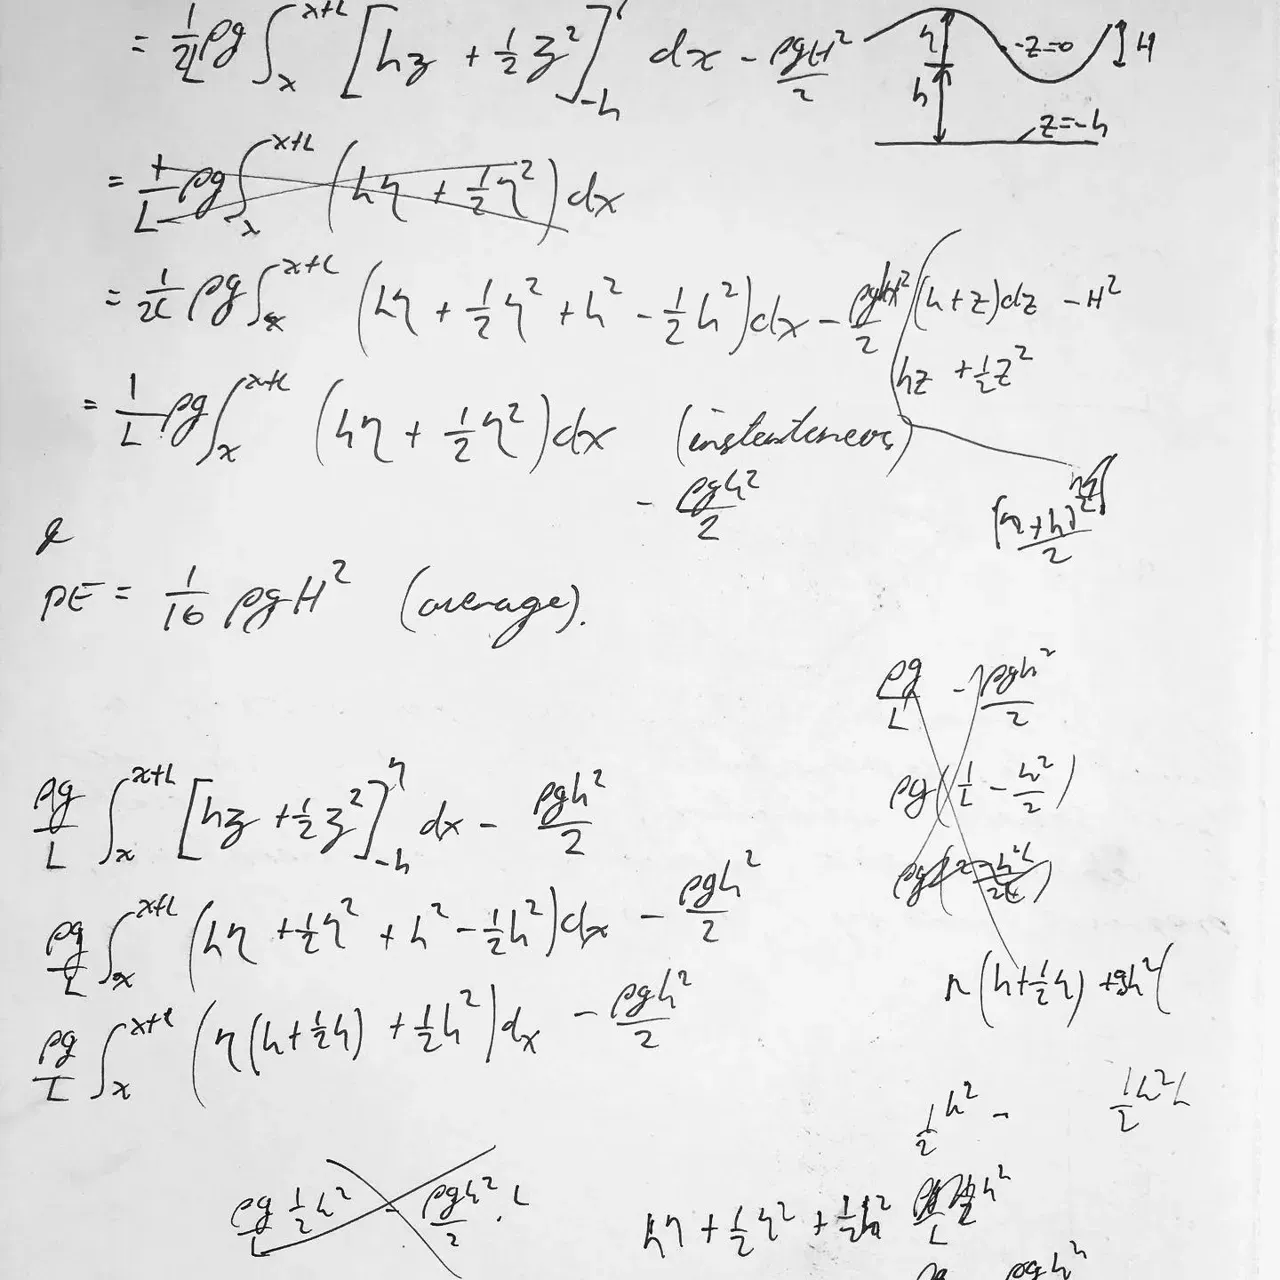 = 1/2L ρg ∫_x^{x+L} [hz + 1/2 z²]_{-h} dx - ρgH²/2
η
h
z=0
H
z=-h
= 1/L ρg ∫_x^{x+L} (hη + 1/2 η²) dx
= 1/2L ρg ∫_x^{x+L} (hη + 1/2 η² + h² - 1/2 h²) dx -
(h+z)dz - H²
hz + 1/2 z²
= 1/L ρg ∫_x^{x+L} (hη + 1/2 η²) dx (instantaneos)
- ρgh²/2
PE = 1/16 ρgH² (average).
ρg/L - ρgh²/2
ρg(1/L - h²/2)
ρg/L ∫_x^{x+L} [hz + 1/2 z²]_{-h}^η dx - ρgh²/2
ρg/L ∫_x^{x+L} (hη + 1/2 η² + h² - 1/2 h²) dx - ρgh²/2
ρg/L ∫_x^{x+L} (η(h + 1/2 h) + 1/2 h²) dx - ρgh²/2
1/2 h² -
1/2 h²L
ρg/L 1/2 h² - ρgh²/2 . L
hη + 1/2 η² + 1/2
ρgh²